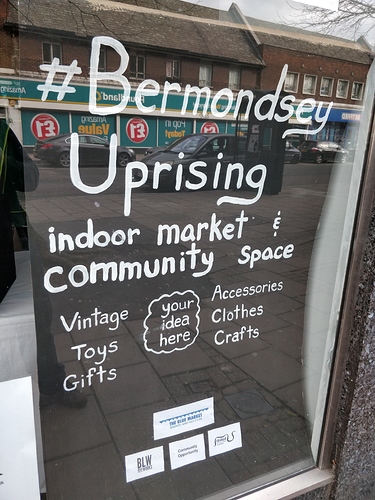 #Bermondsey
Uprising
indoor market &
community space
Vintage
Toys
Gifts
your
idea
here
Accessories
Clothes
Crafts
THE BLUE MARKET
BLW
Community
Opportunity
Amazing
Value
£1
Pop in
Today!
£1